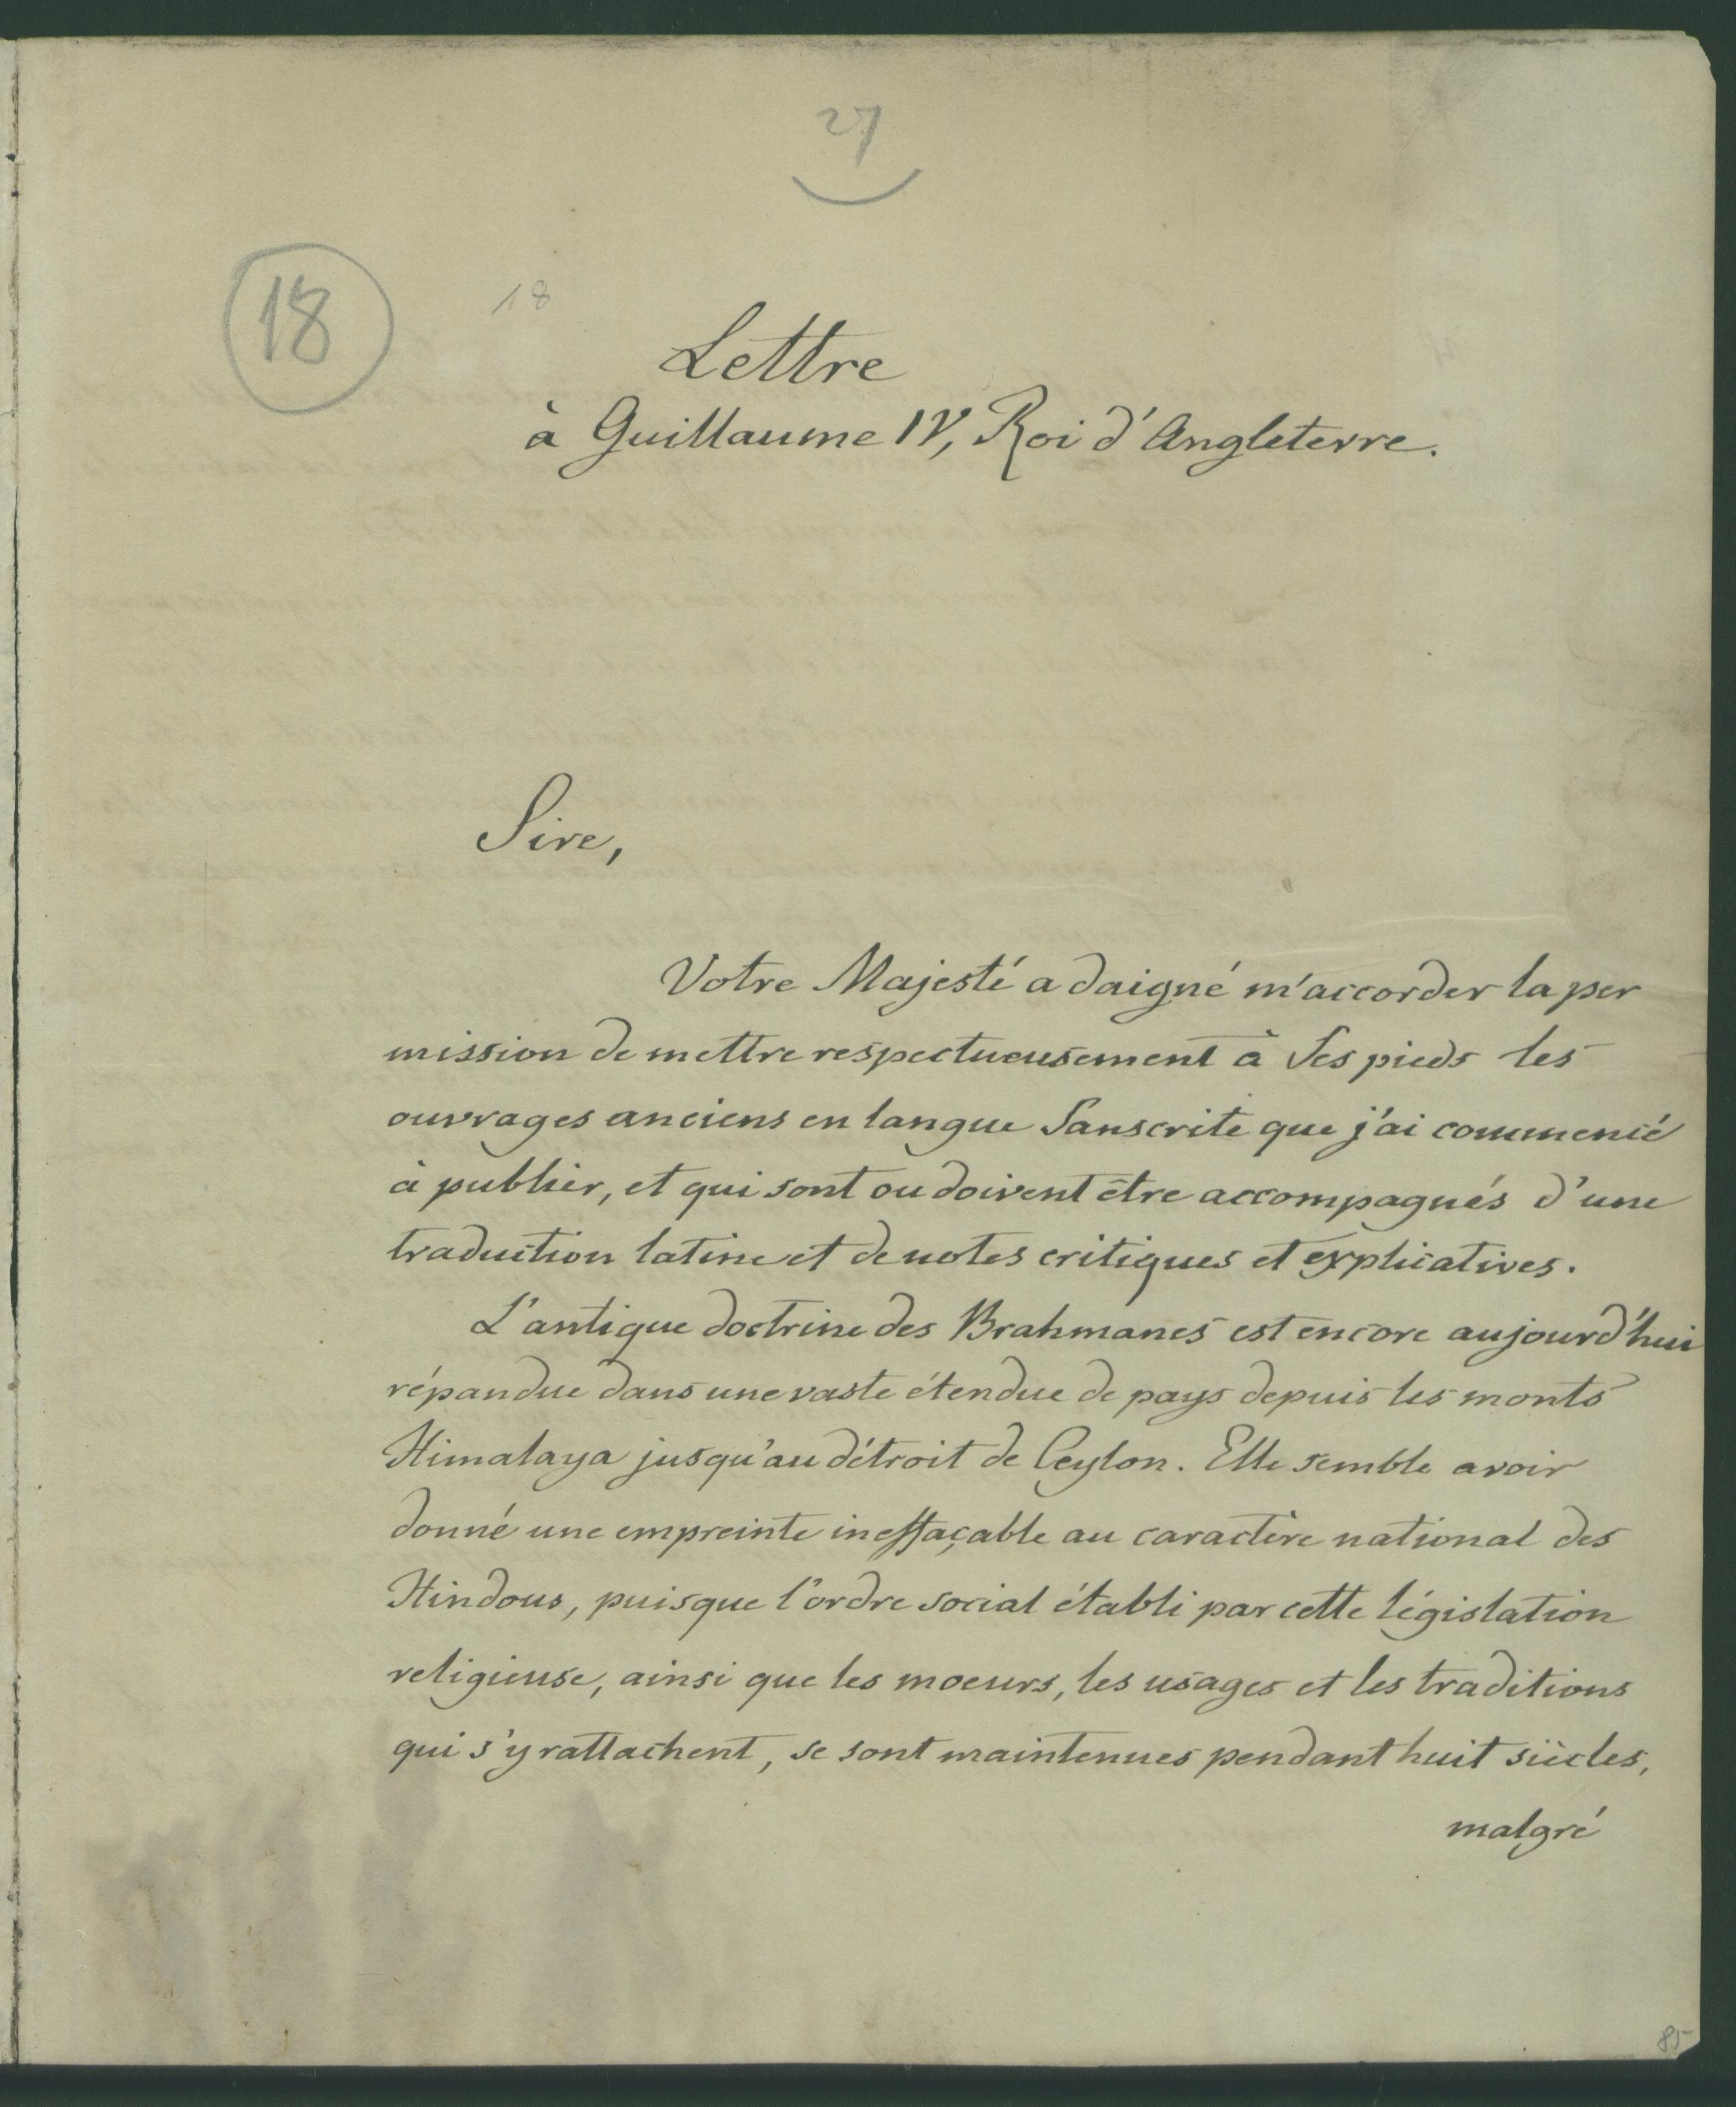 27
18
18
Lettre
à Guillaume IV, Roi d'Angleterre.
Sire,
Votre Majesté a daigné m'accorder la per
mission de mettre respectueusement à Ses pieds les
ouvrages anciens en langue Sanscrite que j'ai commencé
à publier, et qui sont ou doivent être accompagnés d'une
traduction latine et de notes critiques et explicatives.
L'antique doctrine des Brahmanes est encore aujourd'hui
répandue dans une vaste étendue de pays depuis les monts
Himalaya jusqu'au détroit de Ceylon. Elle semble avoir
donné une empreinte ineffaçable au caractère national des
Hindous, puisque l'ordre social établi par cette législation
religieuse, ainsi que les moeurs, les usages et les traditions
qui s'y rattachent, se sont maintenues pendant huit siècles,
malgré
85